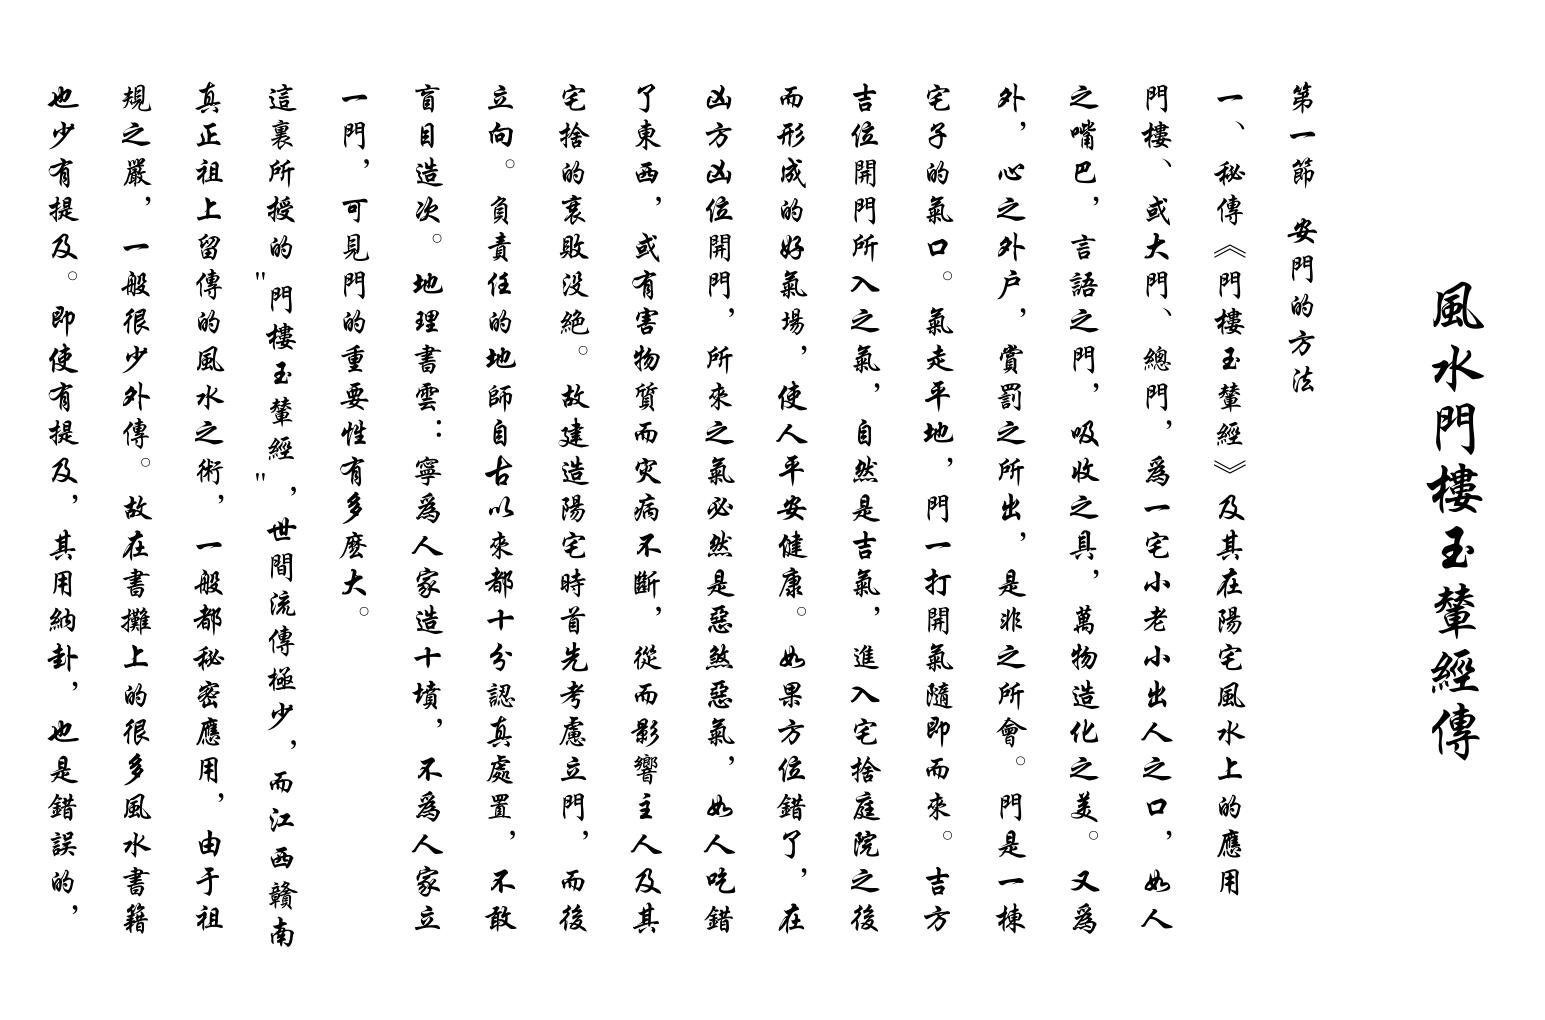 風水門樓玉輦經傳
第一節 安門的方法
一、秘傳《門樓玉輦經》及其在陽宅風水上的應用
門樓、或大門、總門，爲一宅小老小出人之口，如人
之嘴巴，言語之門，吸收之具，萬物造化之美。又爲
外，心之外户，賞罰之所出，是非之所會。門是一棟
宅子的氣口。氣走平地，門一打開氣隨即而來。吉方
吉位開門所入之氣，自然是吉氣，進入宅捨庭院之後
而形成的好氣場，使人平安健康。如果方位錯了，在
凶方凶位開門，所來之氣必然是惡煞惡氣，如人吃錯
了東西，或有害物質而灾病不斷，從而影響主人及其
宅捨的衰敗没絶。故建造陽宅時首先考慮立門，而後
立向。負責任的地師自古以來都十分認真處置，不敢
盲目造次。地理書雲：寧爲人家造十墳，不爲人家立
一門，可見門的重要性有多麽大。
這裏所授的"門樓玉輦經"，世間流傳極少，而江西贛南
真正祖上留傳的風水之術，一般都秘密應用，由于祖
規之嚴，一般很少外傳。故在書攤上的很多風水書籍
也少有提及。即使有提及，其用納卦，也是錯誤的，